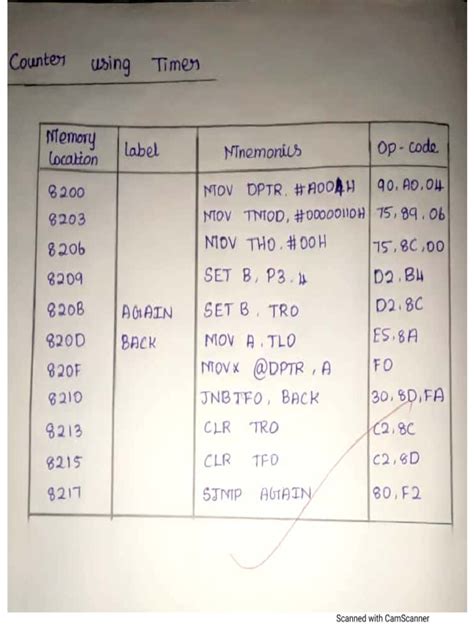 Counter using Timer
Memory Location Label Mnemonics Op-code
8200 MOV DPTR, #A004H 90, A0, 04
8203 MOV TMOD, #00000110H 75, 89, 06
8206 MOV TH0, #00H 75, 8C, 00
8209 SET B, P3.4 D2, B4
820B AGAIN SET B, TR0 D2, 8C
820D BACK MOV A, TL0 E5, 8A
820F MOVX @DPTR, A F0
8210 JNBTF0, BACK 30, 8D, FA
8213 CLR TR0 C2, 8C
8215 CLR TF0 C2, 8D
8217 SJMP AGAIN 80, F2
Scanned with CamScanner